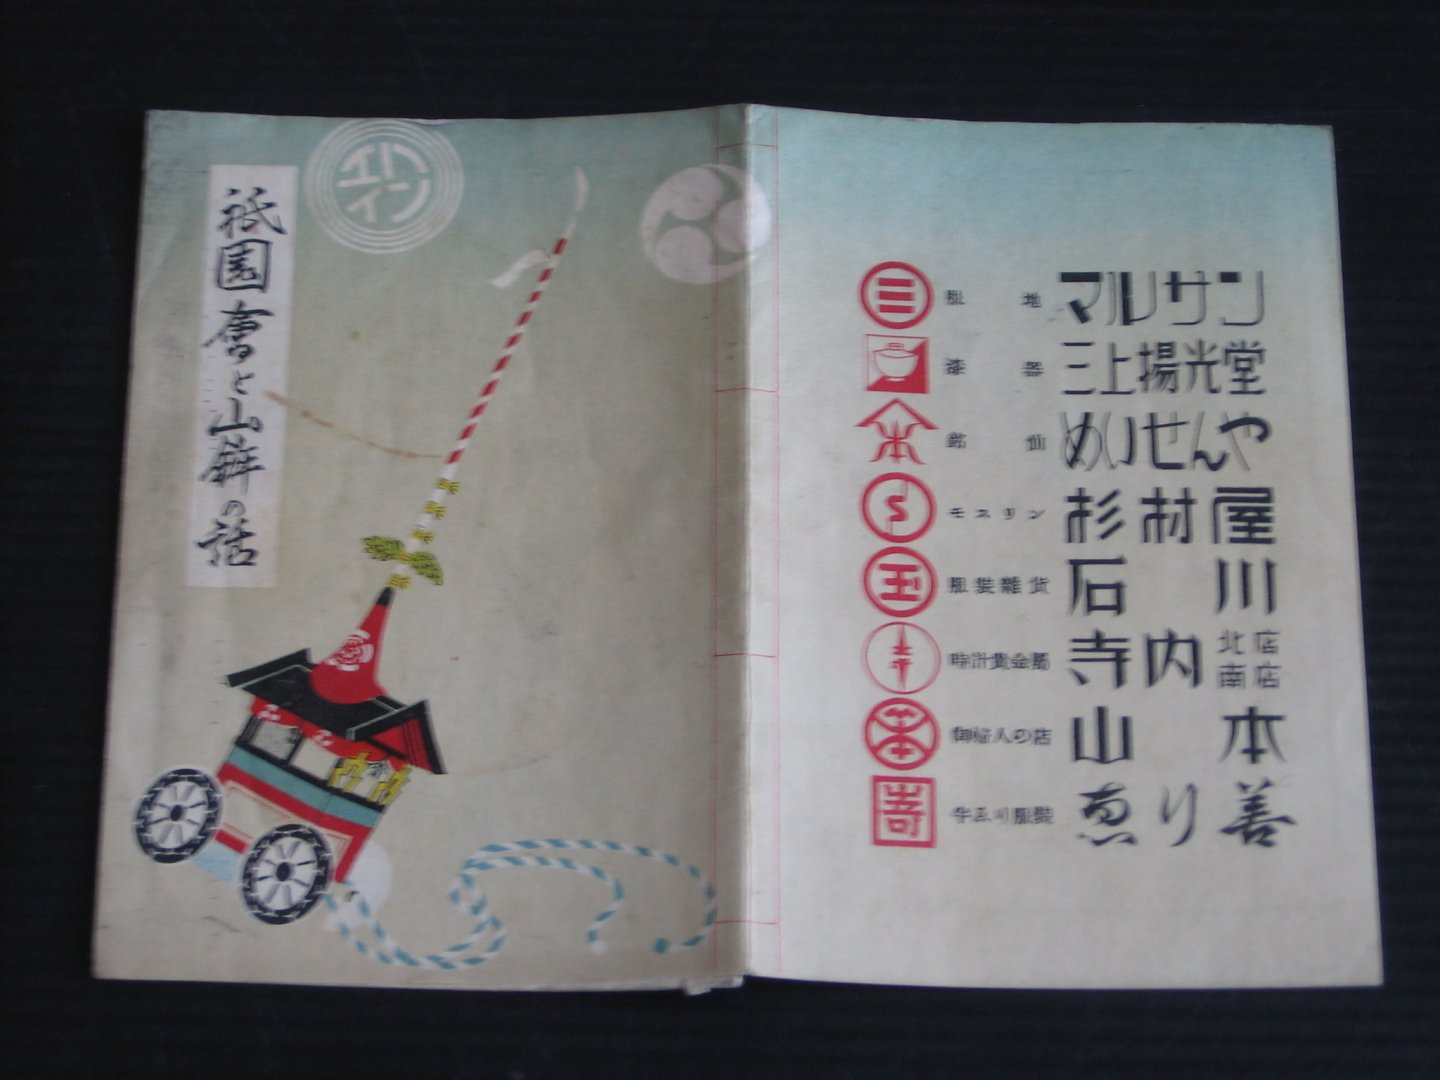 祇園會と山鉾の話
服地 マルサン
漆器 三上揚光堂
銘仙 めいせんや
本
モスリン 杉村屋
玉
服装雑貨 石川
時計貴金属 寺内 北店 南店
御婦人の店 山本
本
服装 ゑり善